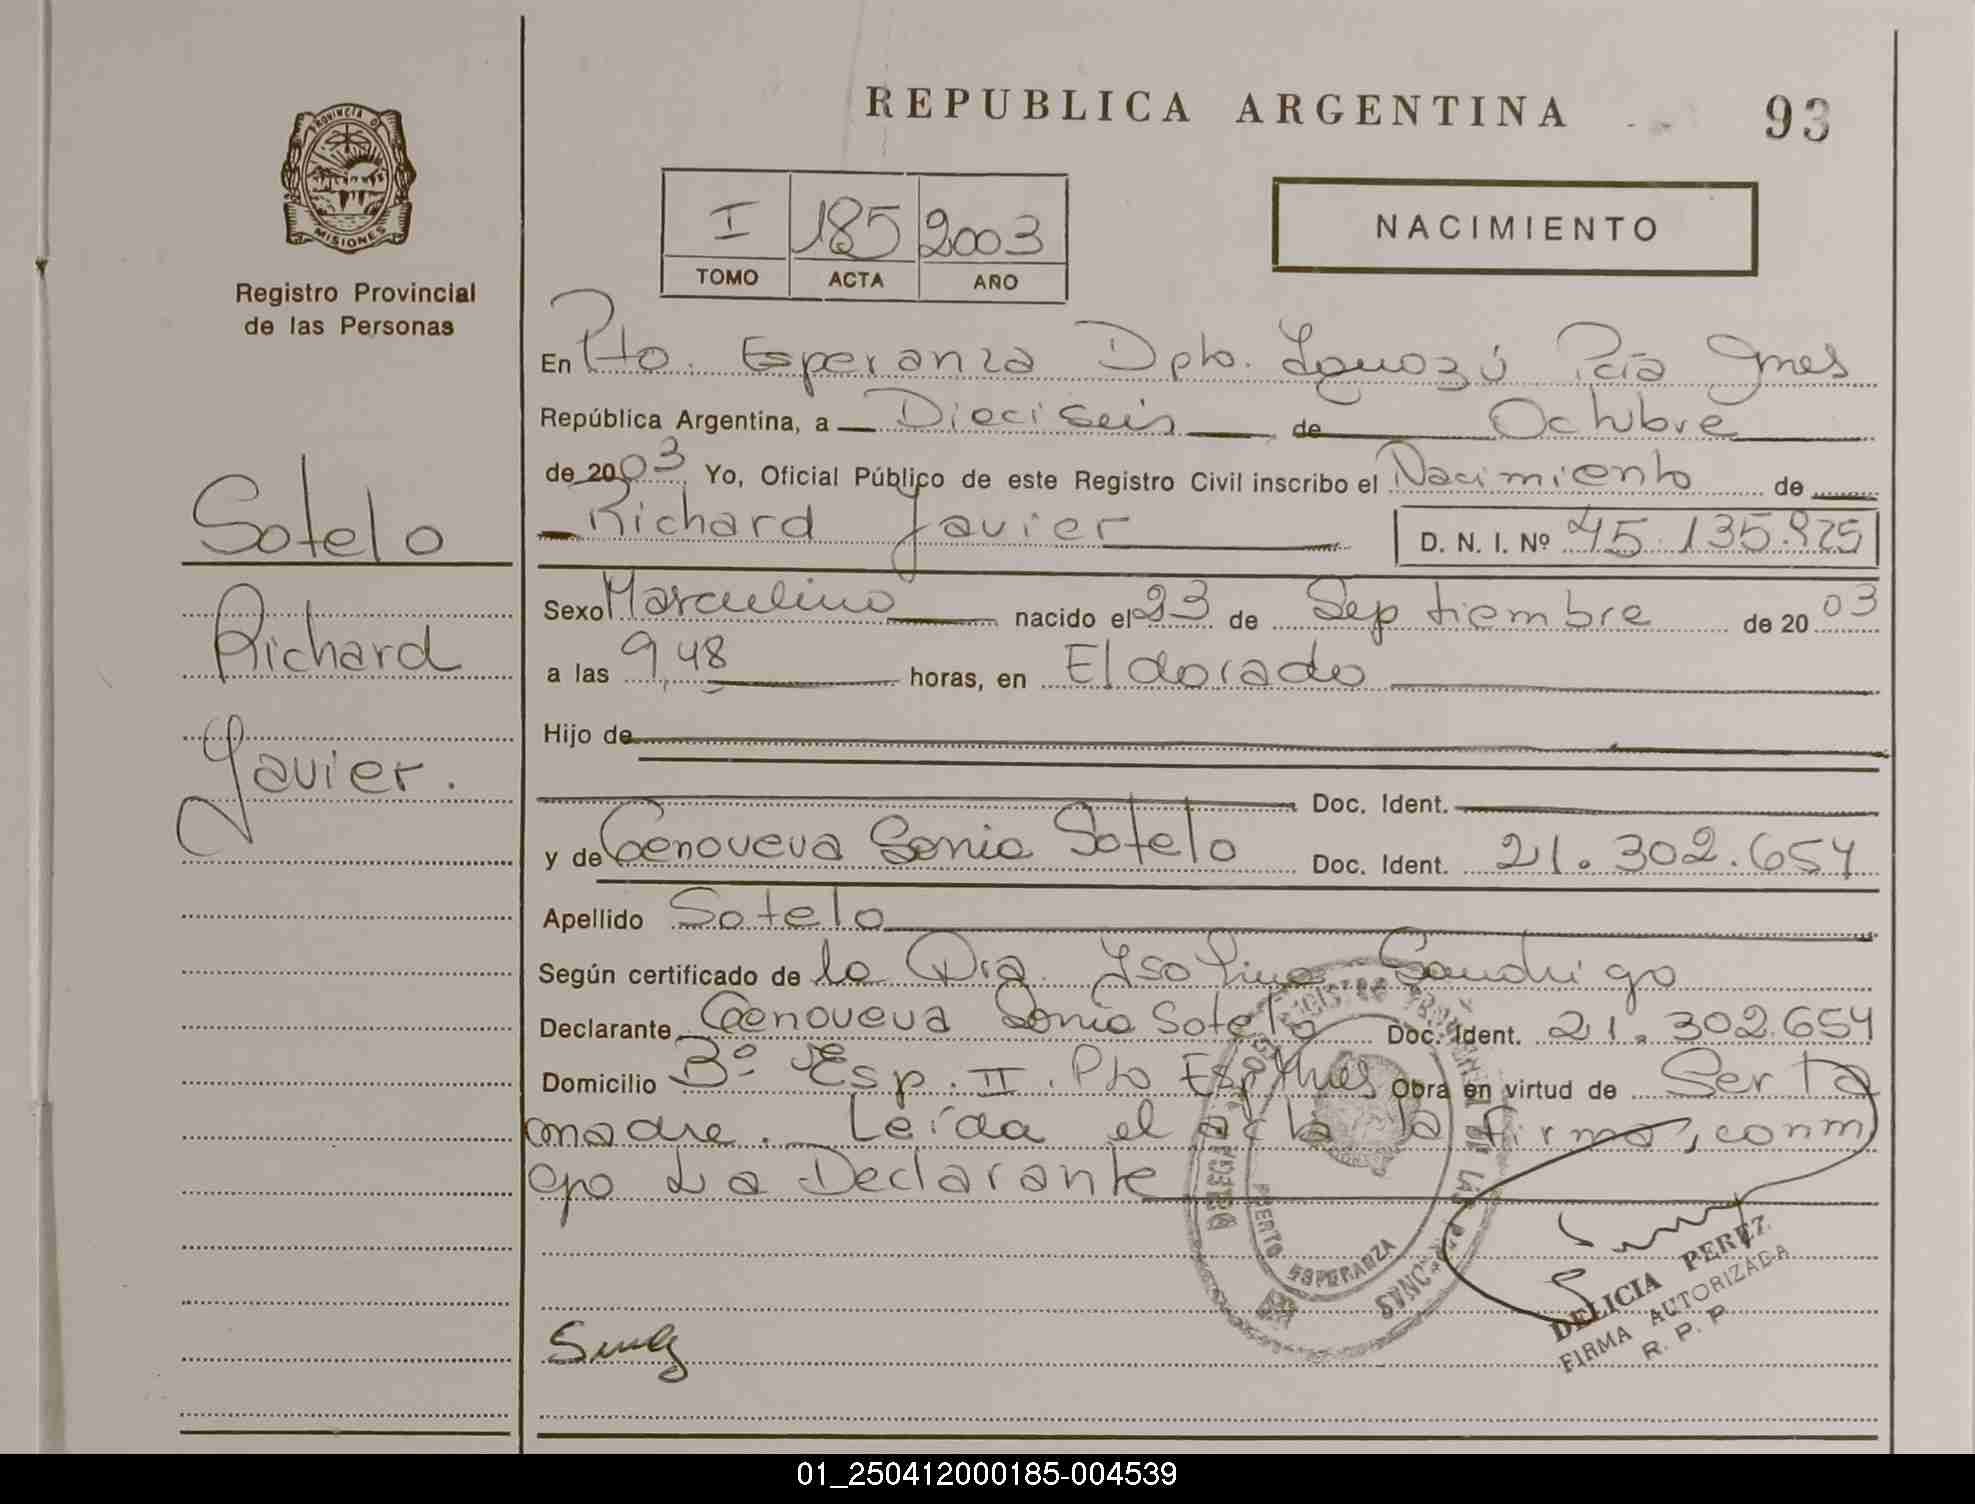 PROVINCIA DE
MISIONES
Registro Provincial
de las Personas
Sotelo
Richard
Javier.
REPUBLICA ARGENTINA 93
I 185 2003
TOMO ACTA AÑO
NACIMIENTO
En Pto. Esperanza Dpto. Iguazú Pcia Mnes
República Argentina, a Dieciseis de Octubre
de 2003 Yo, Oficial Público de este Registro Civil inscribo el Nacimiento de
Richard Javier D. N. I. Nº 45.135.825
Sexo Masculino nacido el 23 de Septiembre de 2003
a las 9,48 horas, en Eldorado
Hijo de
Doc. Ident.
y de Genoveva Sonia Sotelo Doc. Ident. 21.302.654
Apellido Sotelo
Según certificado de la Dra. Isolina
Declarante Genoveva Sonia Sotelo Doc. Ident. 21.302.654
Domicilio Bº Esp. II. Pto Esp. Mnes Obra en virtud de Ser la
madre. Leida el acta la firma, conm
igo La Declarante
PUERTO ESPERANZA
MISIONES
DELICIA PEREZ
FIRMA AUTORIZADA
R. P. P.
01_250412000185-004539